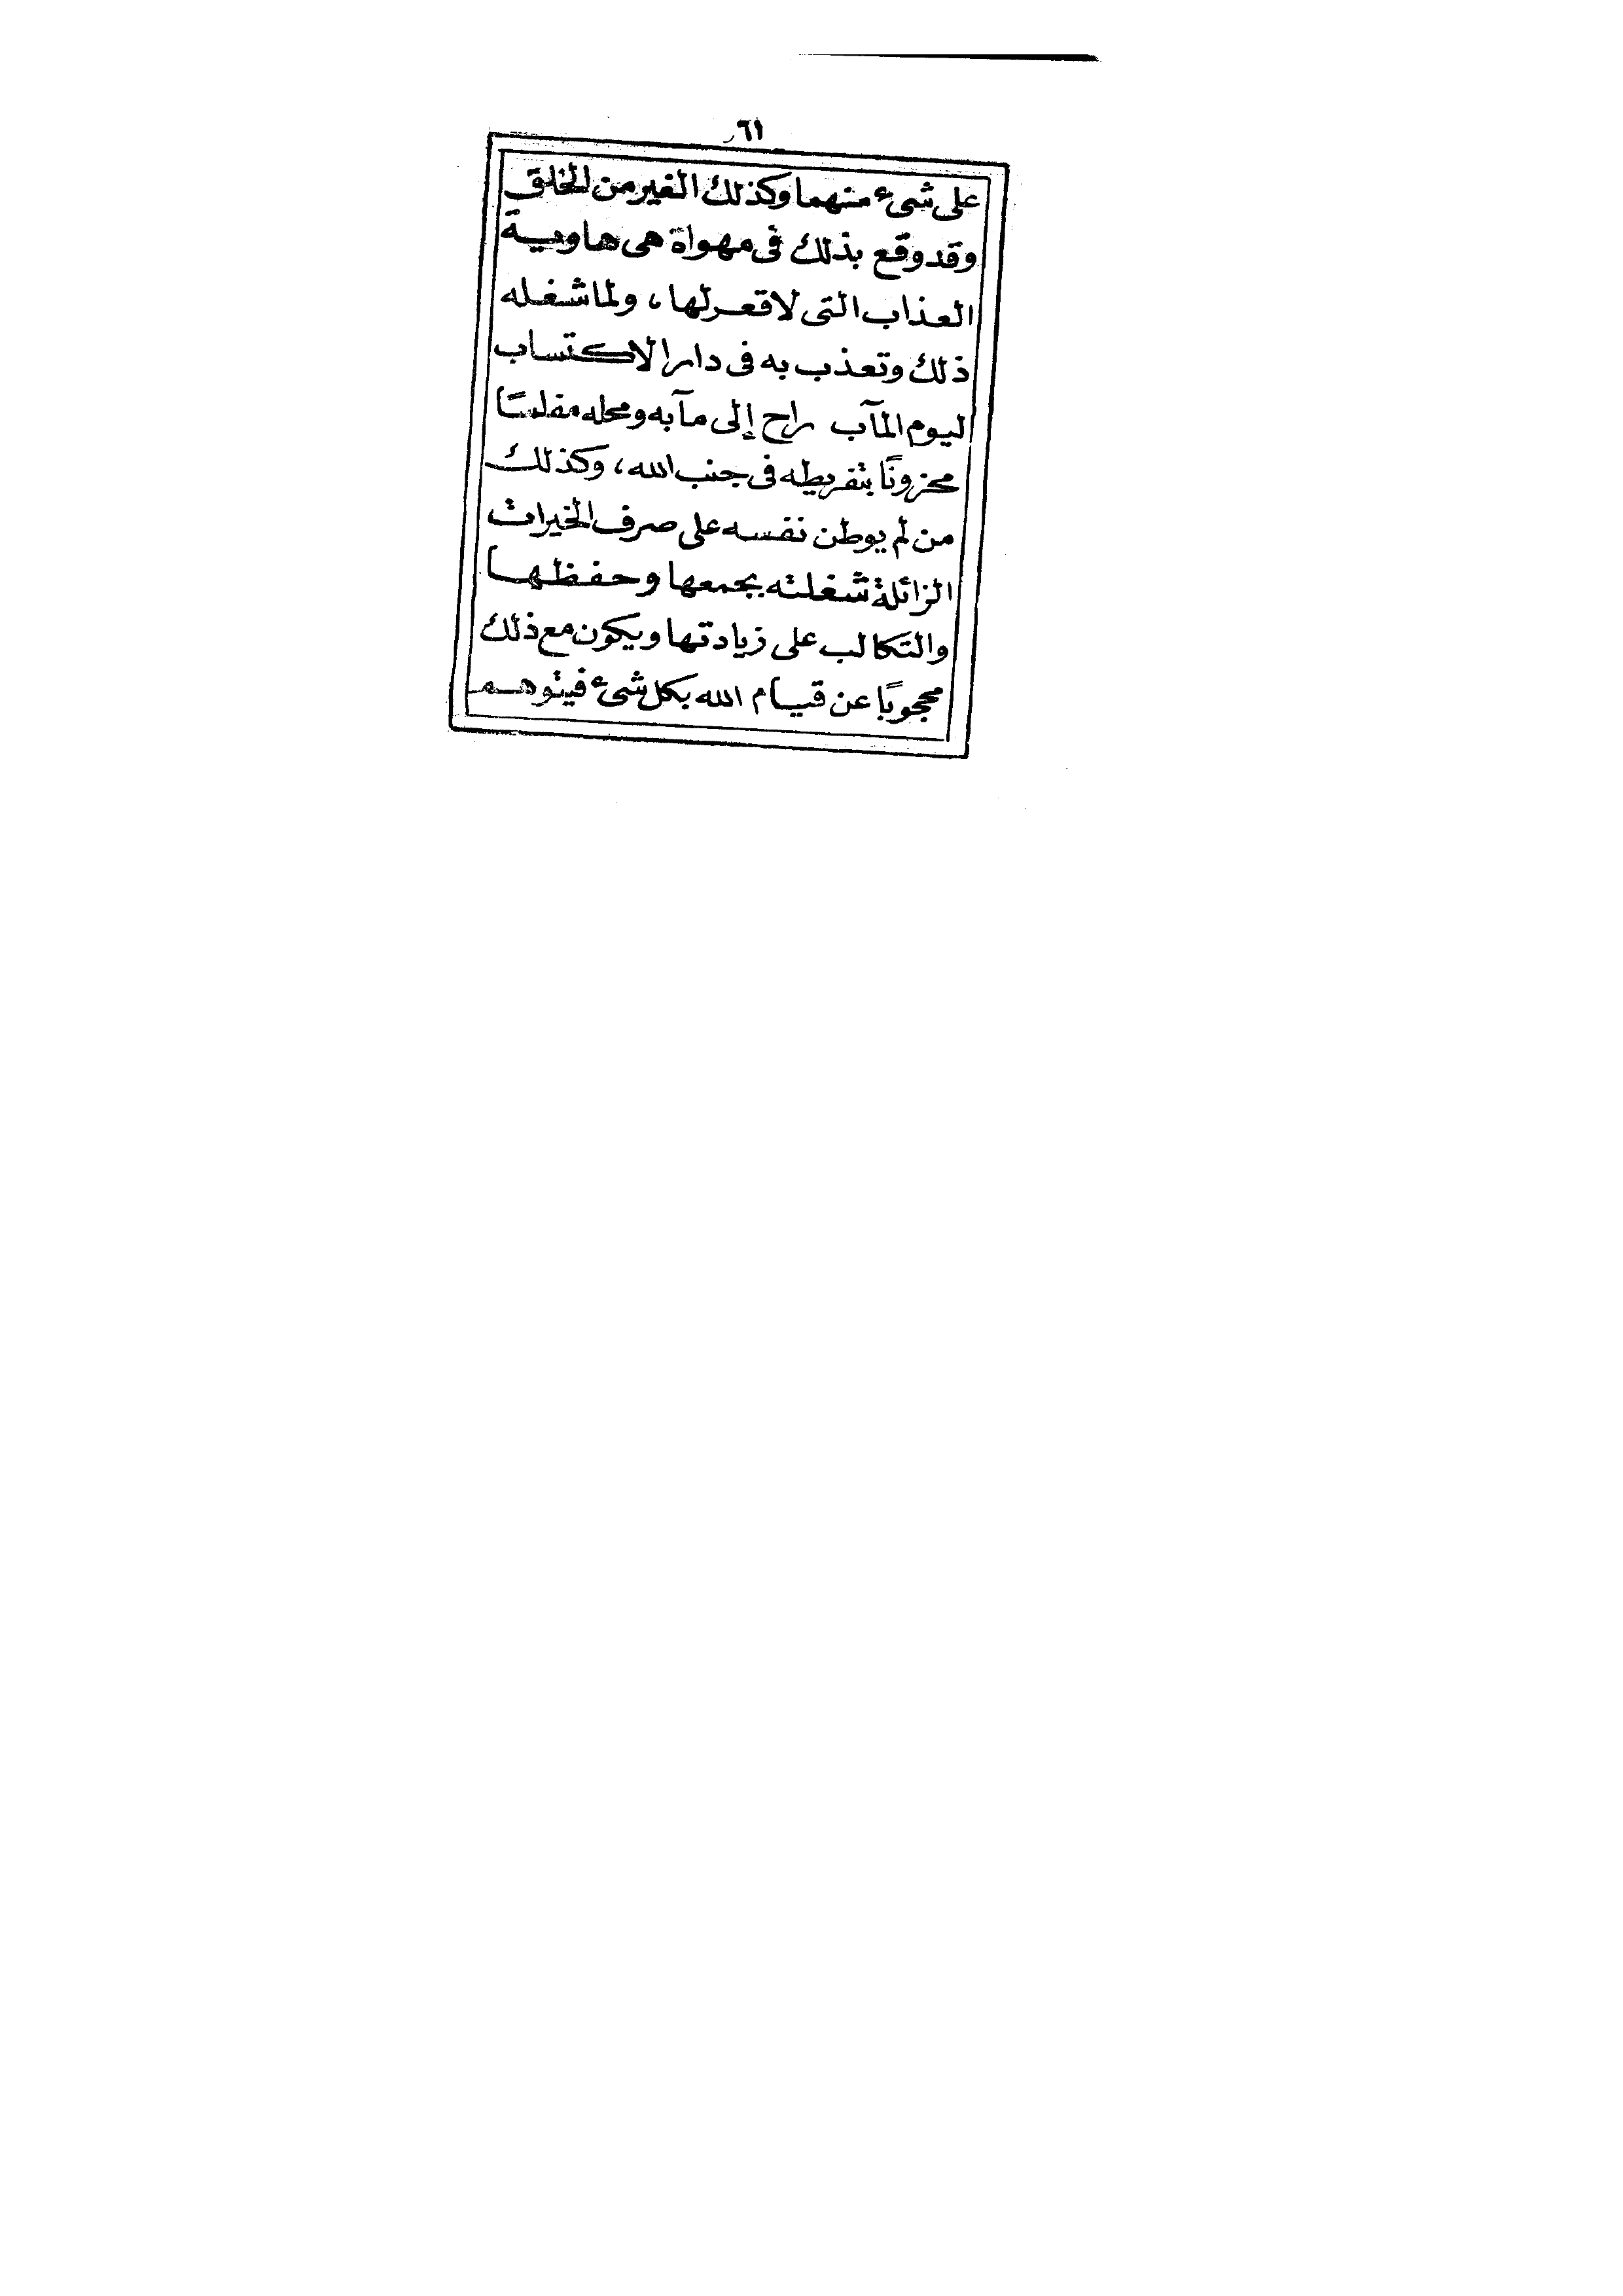 ٦١
على شىء منهما وكذلك الغير من الخلق
وقد وقع بذلك فى مهواة هى هاوية
العذاب التى لا قعر لها، ولما شغله
ذلك وتعذب به فى دار الاكتساب
ليوم المآب راح إلى مآبه ومحله مفلسًا
محزونًا بتفريطه فى جنب الله، وكذلك
من لم يوطن نفسه على صرف الخيرات
الزائلة شغلته بجمعها وحفظها
والتكالب على زيادتها ويكون مع ذلك
محجوبًا عن قيام الله بكل شىء فيتوهم